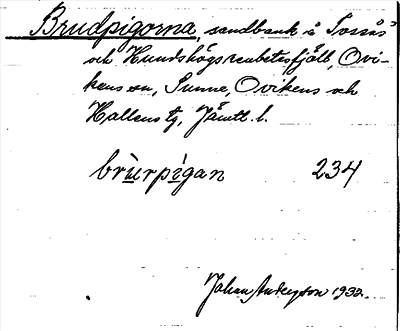 Brudpigorna, sandbank å Tossås-
och Hundshögsrenbetesfjäll, Ovi-
kens sn, Sunne, Ovikens och
Hallens tg, Jämtl. l.
brùrpìgan 234
Johan Anderson 1932.